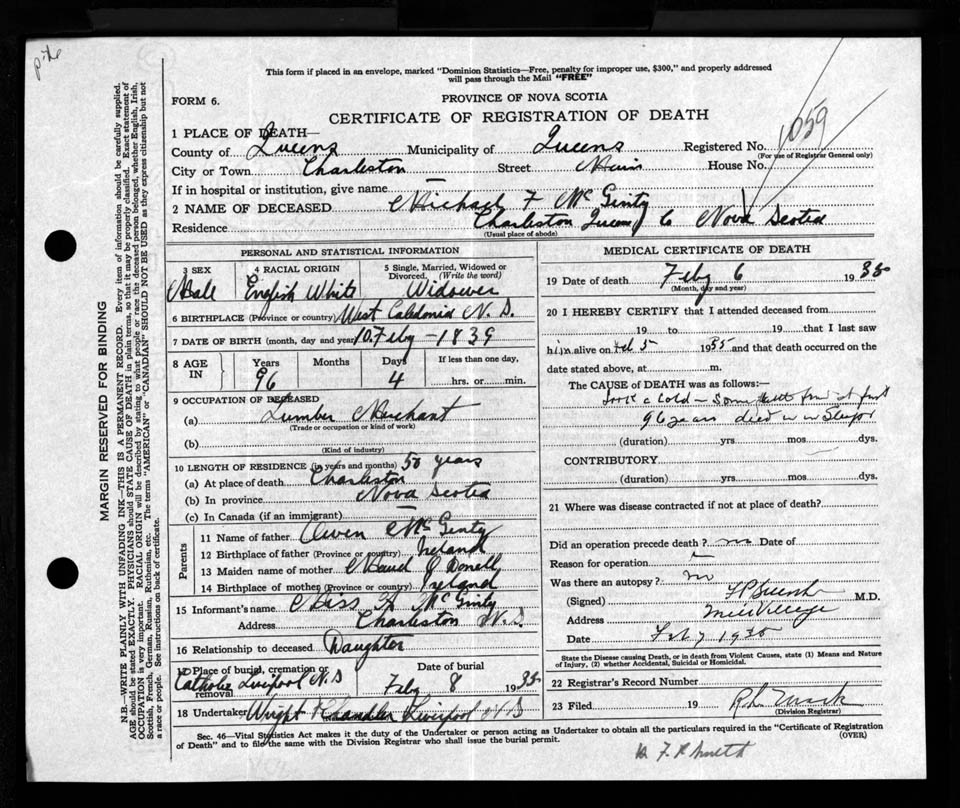 This form if placed in an envelope, marked "Dominion Statistics—Free, penalty for improper use, $300," and properly addressed
will pass through the Mail "FREE"
FORM 6.
PROVINCE OF NOVA SCOTIA
CERTIFICATE OF REGISTRATION OF DEATH
1059
1 PLACE OF DEATH—
County of Queens Municipality of Queens Registered No.
(For use of Registrar General only)
City or Town Charleston Street Main House No.
If in hospital or institution, give name —
2 NAME OF DECEASED Michael F McGinty
Residence Charleston Queens Co Nova Scotia
(Usual place of abode)
PERSONAL AND STATISTICAL INFORMATION
3 SEX
Male
4 RACIAL ORIGIN
English White
5 Single, Married, Widowed or
Divorced, (Write the word)
Widower
6 BIRTHPLACE (Province or country) West Caledonia N. S.
7 DATE OF BIRTH (month, day and year) 10 Feby - 1839
8 AGE IN
Years 96
Months
Days 4
If less than one day,
hrs. or min.
9 OCCUPATION OF DECEASED
(a) Lumber Merchant
(Trade or occupation or kind of work)
(b)
(Kind of industry)
10 LENGTH OF RESIDENCE (in years and months) 50 years
(a) At place of death Charleston
(b) In province Nova Scotia
(c) In Canada (if an immigrant) —
Parents
11 Name of father Owen McGinty
12 Birthplace of father (Province or country) Ireland
13 Maiden name of mother Maud O Donell
14 Birthplace of mother (Province or country) Ireland
15 Informant's name Miss McGinty
Address Charleston N.S.
16 Relationship to deceased Daughter
17 Place of burial, cremation or
removal Catholic Liverpool N.S
Date of burial
Feby 8 1935
18 Undertaker Wright Chandler Liverpool N S
MEDICAL CERTIFICATE OF DEATH
19 Date of death Feby 6 1935
(Month, day and year)
20 I HEREBY CERTIFY that I attended deceased from
19 to 19 that I last saw
him alive on Feb 5 1935 and that death occurred on the
date stated above, at m.
The CAUSE of DEATH was as follows:—
Took a cold —
96 years died in a
(duration) yrs. mos. dys.
CONTRIBUTORY
(duration) yrs. mos. dys.
21 Where was disease contracted if not at place of death?
Did an operation precede death? no Date of
Reason for operation
Was there an autopsy? no
(Signed) M.D.
Address Mill Village
Date Feb 7 1935
State the Disease causing Death, or in death from Violent Causes, state (1) Means and Nature
of Injury, (2) whether Accidental, Suicidal or Homicidal.
22 Registrar's Record Number
23 Filed 19
(Division Registrar)
Sec. 46—Vital Statistics Act makes it the duty of the Undertaker or person acting as Undertaker to obtain all the particulars required in the "Certificate of Registration
of Death" and to file the same with the Division Registrar who shall issue the burial permit. (OVER)
MARGIN RESERVED FOR BINDING
N.B.—WRITE PLAINLY WITH UNFADING INK—THIS IS A PERMANENT RECORD. Every item of information should be carefully supplied.
AGE should be stated EXACTLY. PHYSICIANS should STATE CAUSE OF DEATH in plain terms, so that it may be properly classified. Exact statement of
OCCUPATION is very important. RACIAL ORIGIN will be described by stating to what people or race the deceased person belonged, whether English, Irish,
Scottish, French, German, Russian, Ruthenian, etc. The terms "AMERICAN" or "CANADIAN" SHOULD NOT BE USED as they express citizenship but not
a race or people. See instructions on back of certificate.